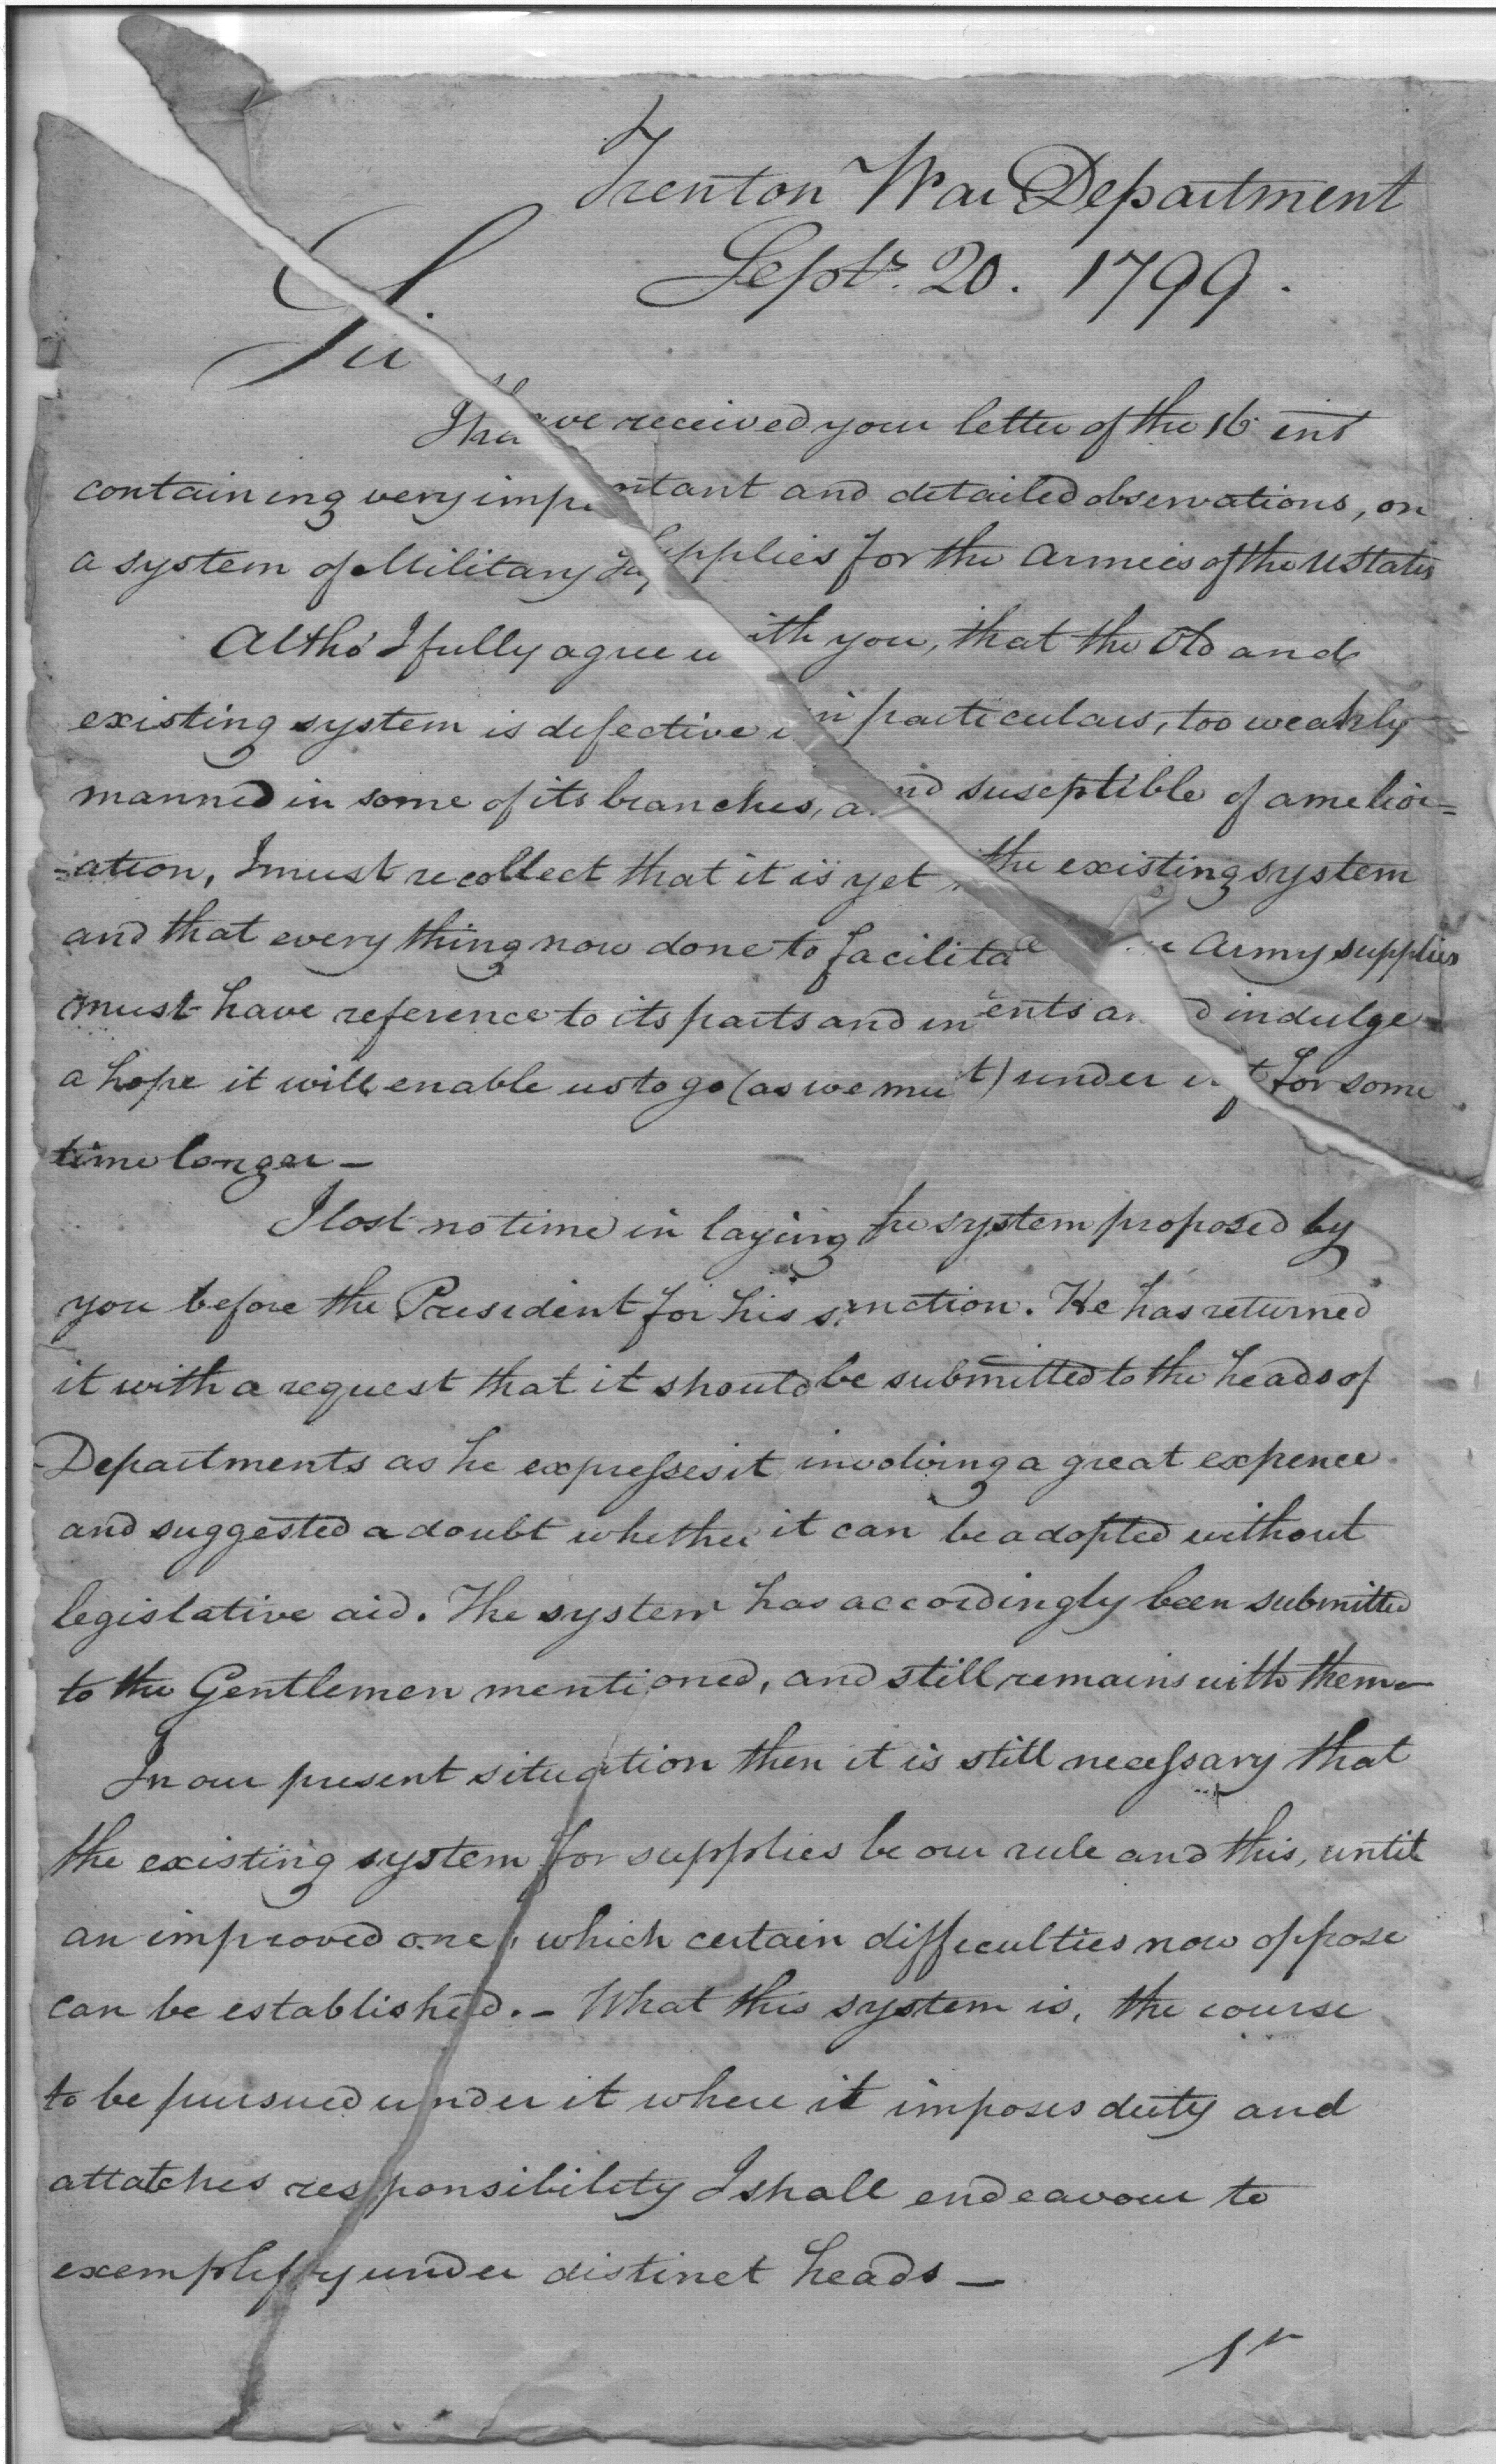 Trenton War Department
Septr. 20. 1799.
Sir
I have received your letter of the 16 inst
containing very important and detailed observations, on
a system of Military Supplies for the Armies of the UStates
Altho' I fully agree with you, that the Old and
existing system is defective in particulars, too weakly
manned in some of its branches, and susceptible of amelior=
-ation, I must recollect that it is yet the existing system
and that every thing now done to facilitate Army supplies
must have reference to its parts and and indulge
a hope it will enable us to go (as we must) under it for some
time longer —
I lost no time in laying the system proposed by
you before the President for his sanction. He has returned
it with a request that it should be submitted to the heads of
Departments as he expresses it involving a great expence
and suggested a doubt whether it can be adopted without
legislative aid. The system has accordingly been submitted
to the Gentlemen mentioned, and still remains with them—
In our present situation then it is still necessary that
the existing system for supplies be our rule and this, until
an improved one, which certain difficulties now oppose
can be established. – What this system is, the course
to be pursued under it where it imposes duty and
attatches responsibility I shall endeavour to
exemplify under distinct heads —
1st